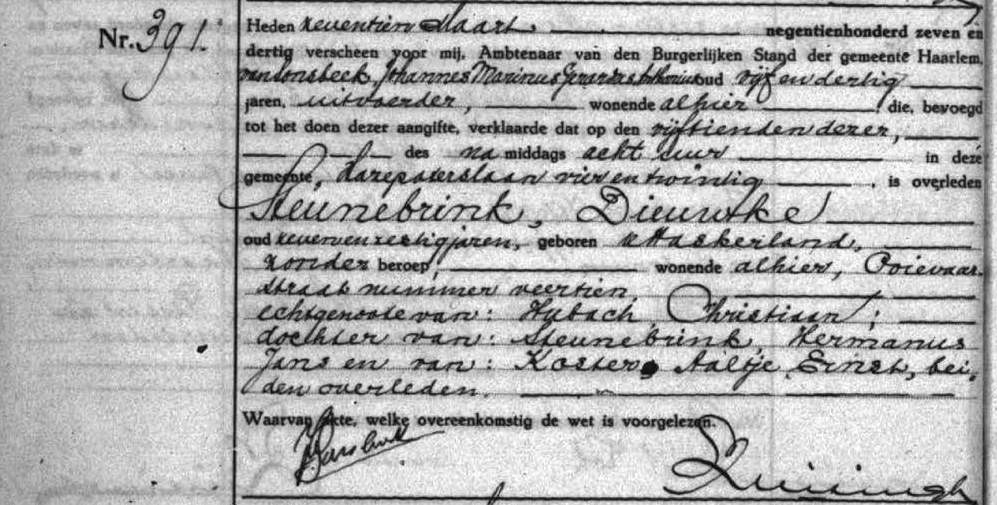 Nr. 391.
Heden zeventien Maart negentienhonderd zeven en
dertig verscheen voor mij, Ambtenaar van den Burgerlijken Stand der gemeente Haarlem,
van Lonsbeek, Johannes Marinus Gerardus Antonius oud vijf en dertig
jaren, uitvoerder, wonende alhier, die, bevoegd
tot het doen dezer aangifte, verklaarde dat op den vijftienden dezer,
des na middags acht uur in deze
gemeente, Hazepaterslaan vier en twintig, is overleden
Steunebrink, Dieuwke
oud zeven en zestig jaren, geboren Haskerland,
zonder beroep, wonende alhier, Ooievaar-
straat nummer veertien
echtgenoote van: Hybach Christiaan;
dochter van: Steunebrink, Hermanus
Jans en van: Koster, Aaltje Ernst, bei-
den overleden.
Waarvan Akte, welke overeenkomstig de wet is voorgelezen.